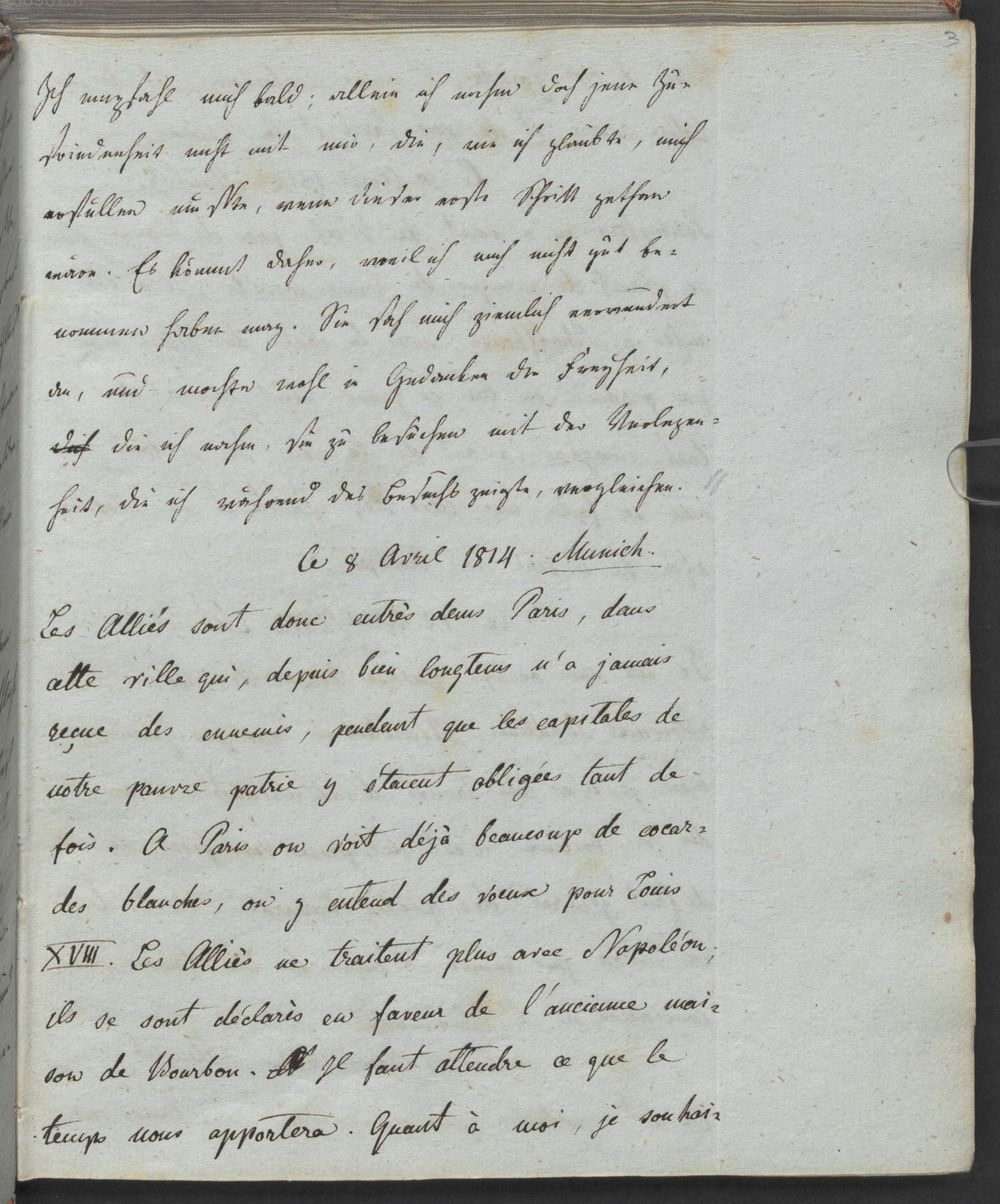 3
Ich empfahl mich bald; allein ich nahm doch jene Zu=
friedenheit nicht mit mir, die, wie ich glaubte, mich
erfüllen müßte, wenn dieser erste Schritt gethan
wäre. Es kömmt daher, weil ich mich nicht gut be=
nommen haben mag. Sie sah mich ziemlich verwundert
an, und mochte wohl in Gedanken die Freyheit,
die ich nahm, sie zu besuchen mit der Verlegen=
heit, die ich während des Besuchs zeigte, vergleichen.
Le 8 Avril 1814. Munich.
Les Alliés sont donc entrès dans Paris, dans
cette ville qui, depuis bien longtems n'a jamais
reçue des ennemis, pendant que les capitales de
notre pauvre patrie y étaient obligées tant de
fois. A Paris on voit déjà beaucoup de cocar=
des blanches, on y entend des voeux pour Louis
XVIII. Les Alliès ne traitent plus avec Napoléon;
ils se sont déclarès en faveur de l'ancienne mai=
son de Bourbon. Il faut attendre ce que le
temps nous apportera. Quant à moi, je souhai=